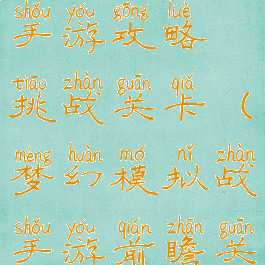 shǒu yóu gōng luè
手游攻略
tiāo zhàn guān qiǎ
挑战关卡（
mèng huàn mó nǐ zhàn
梦幻模拟战
shǒu yóu qián zhān guān
手游前瞻关